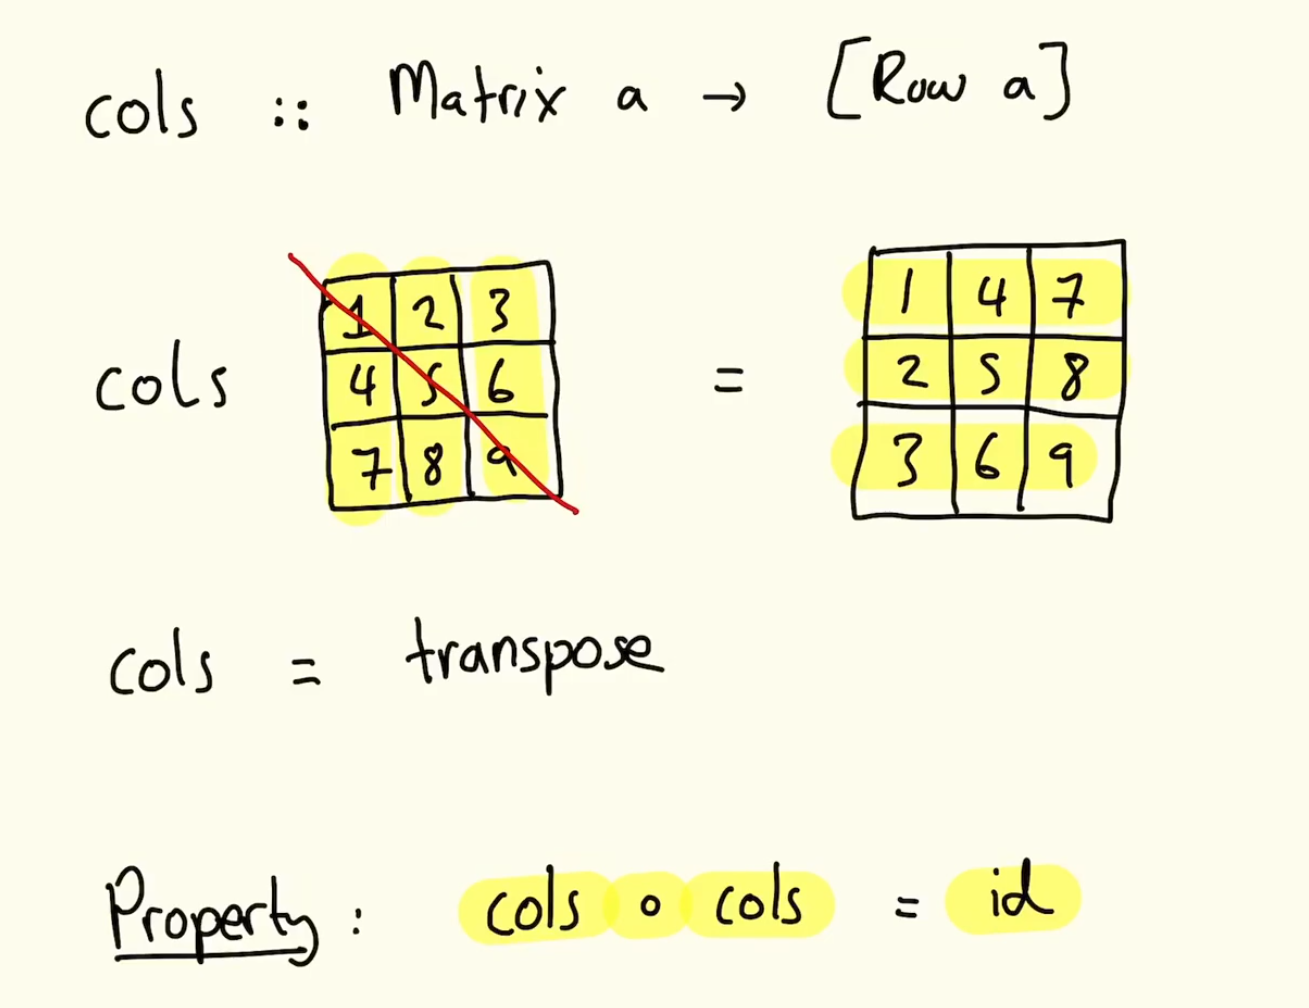 cols :: Matrix a → [Row a]
1 2 3
4 5 6
7 8 9
cols =
1 4 7
2 5 8
3 6 9
cols = transpose
Property: cols ∘ cols = id